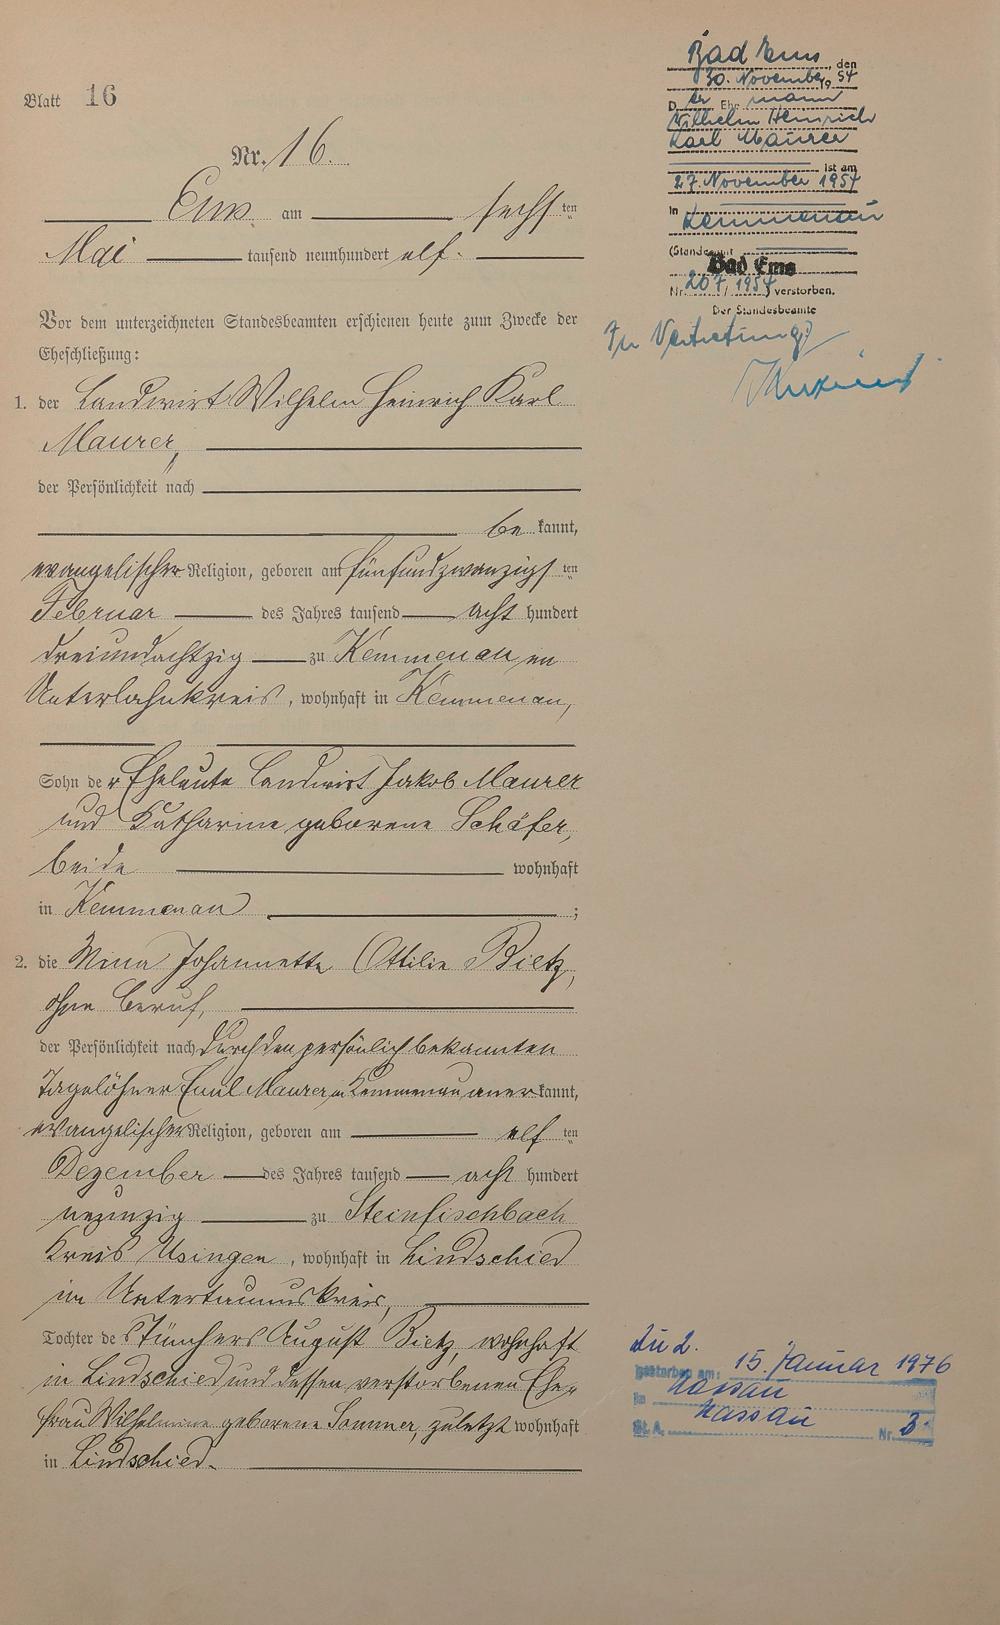 Blatt 16
Nr. 16.
Ems am sechsten
Mai tausend neunhundert elf.
Vor dem unterzeichneten Standesbeamten erschienen heute zum Zwecke der
Eheschließung:
1. der Landwirt Wilhelm Heinrich Karl
Maurer,
der Persönlichkeit nach
be kannt,
evangelischer Religion, geboren am fünfundzwanzigsten
Februar des Jahres tausend acht hundert
dreiundachtzig zu Kemmenau im
Unterlahnkreis, wohnhaft in Kemmenau,
Sohn der Eheleute Landwirt Jakob Maurer
und Katharine geborene Schäfer,
beide wohnhaft
in Kemmenau ;
2. die Mina Johannette Ottilie Bietz,
ohne Beruf,
der Persönlichkeit nach durch den persönlich bekannten
Tagelöhner Emil Maurer in Kemmenau aner kannt,
evangelischer Religion, geboren am elf ten
Dezember des Jahres tausend acht hundert
neunzig zu Steinfischbach
Kreis Usingen, wohnhaft in Lindschied
im Untertaunuskreis,
Tochter des Tünchers August Bietz, wohnhaft
in Lindschied und dessen verstorbenen Ehe-
frau Wilhelmine geborene Sommer, zuletzt wohnhaft
in Lindschied.
Bad Ems, den
30. November 1954
Der Ehemann
Wilhelm Heinrich
Karl Maurer
ist am
27. November 1954
in Kemmenau
(Standesamt
Bad Ems
Nr. 207/1954 verstorben.
Der Standesbeamte
In Vertretung:
Zu 2.
gestorben am: 15. Januar 1976
in Nassau
St. A. Nassau Nr. 3